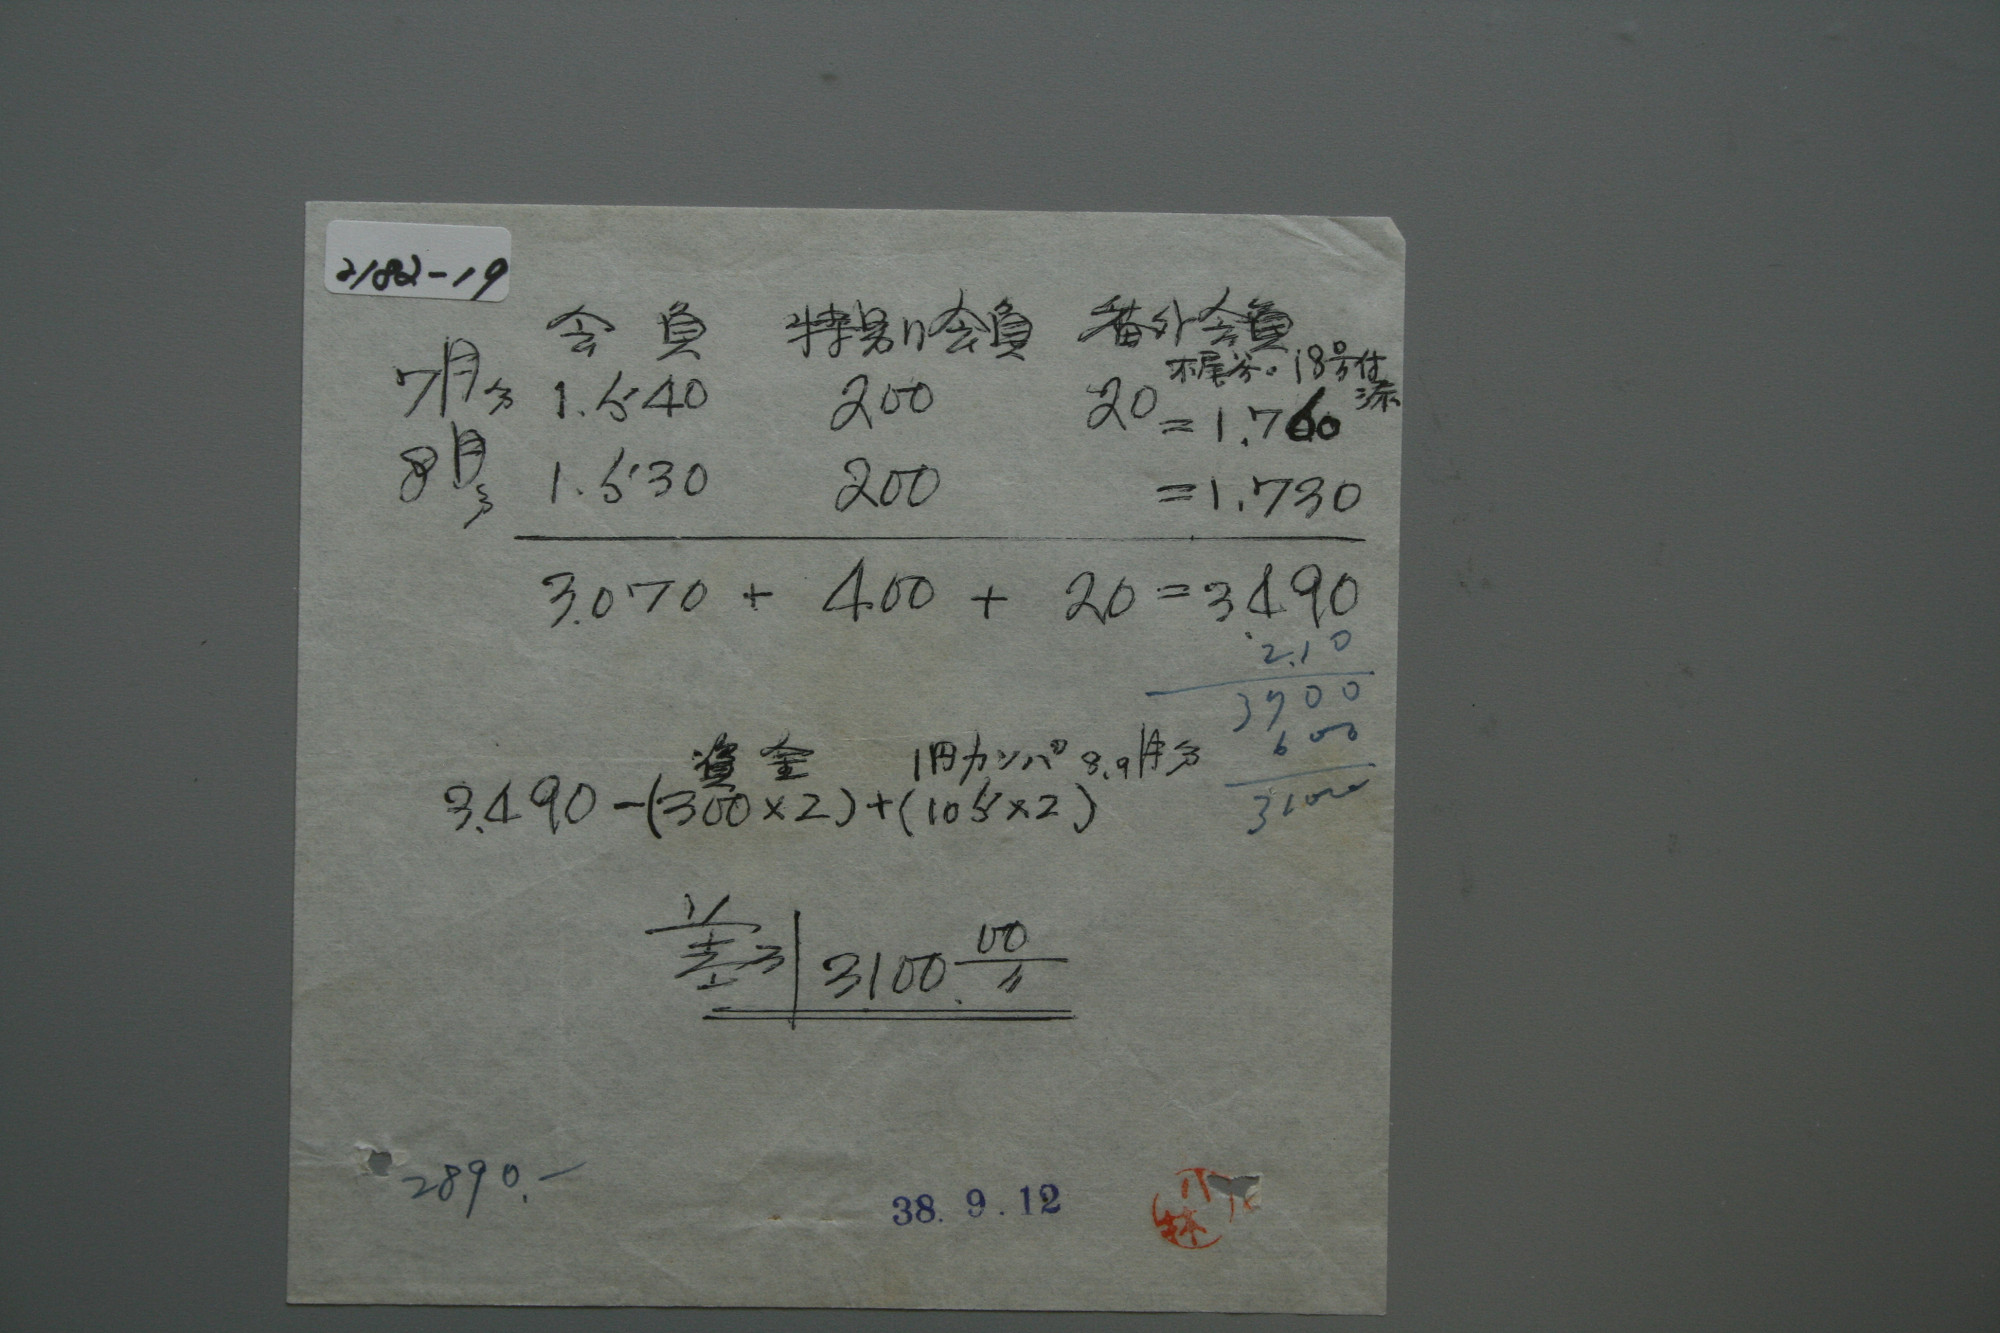 2182-19
会員 特別会員 番外会員
木尾分。18号付
7月分 1.540 200 20 = 1.760 添
8月分 1.530 200 = 1.730
3.070 + 400 + 20 = 3490
2.10
3700
600
3100
資金 1円カンパ 8.9月分
3.490 - (300×2) + (105×2)
差引 3100.00
2890.-
38. 9. 12